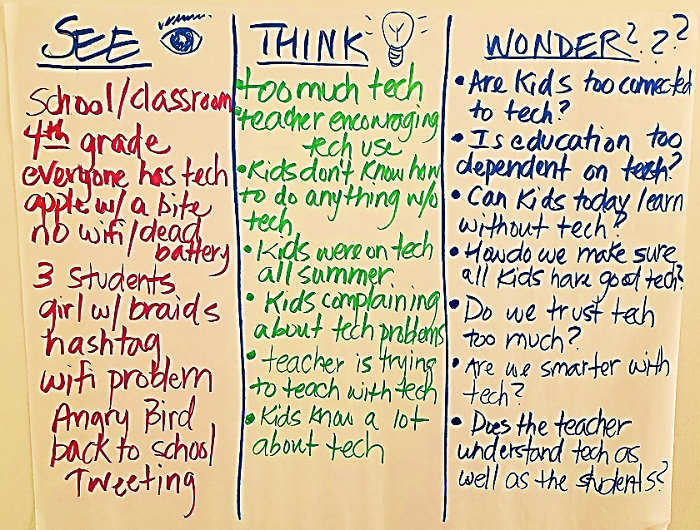 SEE
School/classroom
4th grade
everyone has tech
apple w/ a bite
no wifi/dead
battery
3 students
girl w/ braids
hashtag
wifi problem
Angry Bird
back to school
Tweeting
THINK
• too much tech
• teacher encouraging
tech use
• Kids don't know how
to do anything w/o
tech
• Kids were on tech
all summer
• Kids complaining
about tech problems
• teacher is trying
to teach with tech
• Kids know a lot
about tech
WONDER???
• Are Kids too connected
to tech?
• Is education too
dependent on tech?
• Can Kids today learn
without tech?
• How do we make sure
all Kids have good tech?
• Do we trust tech
too much?
• Are we smarter with
tech?
• Does the teacher
understand tech as
well as the students?